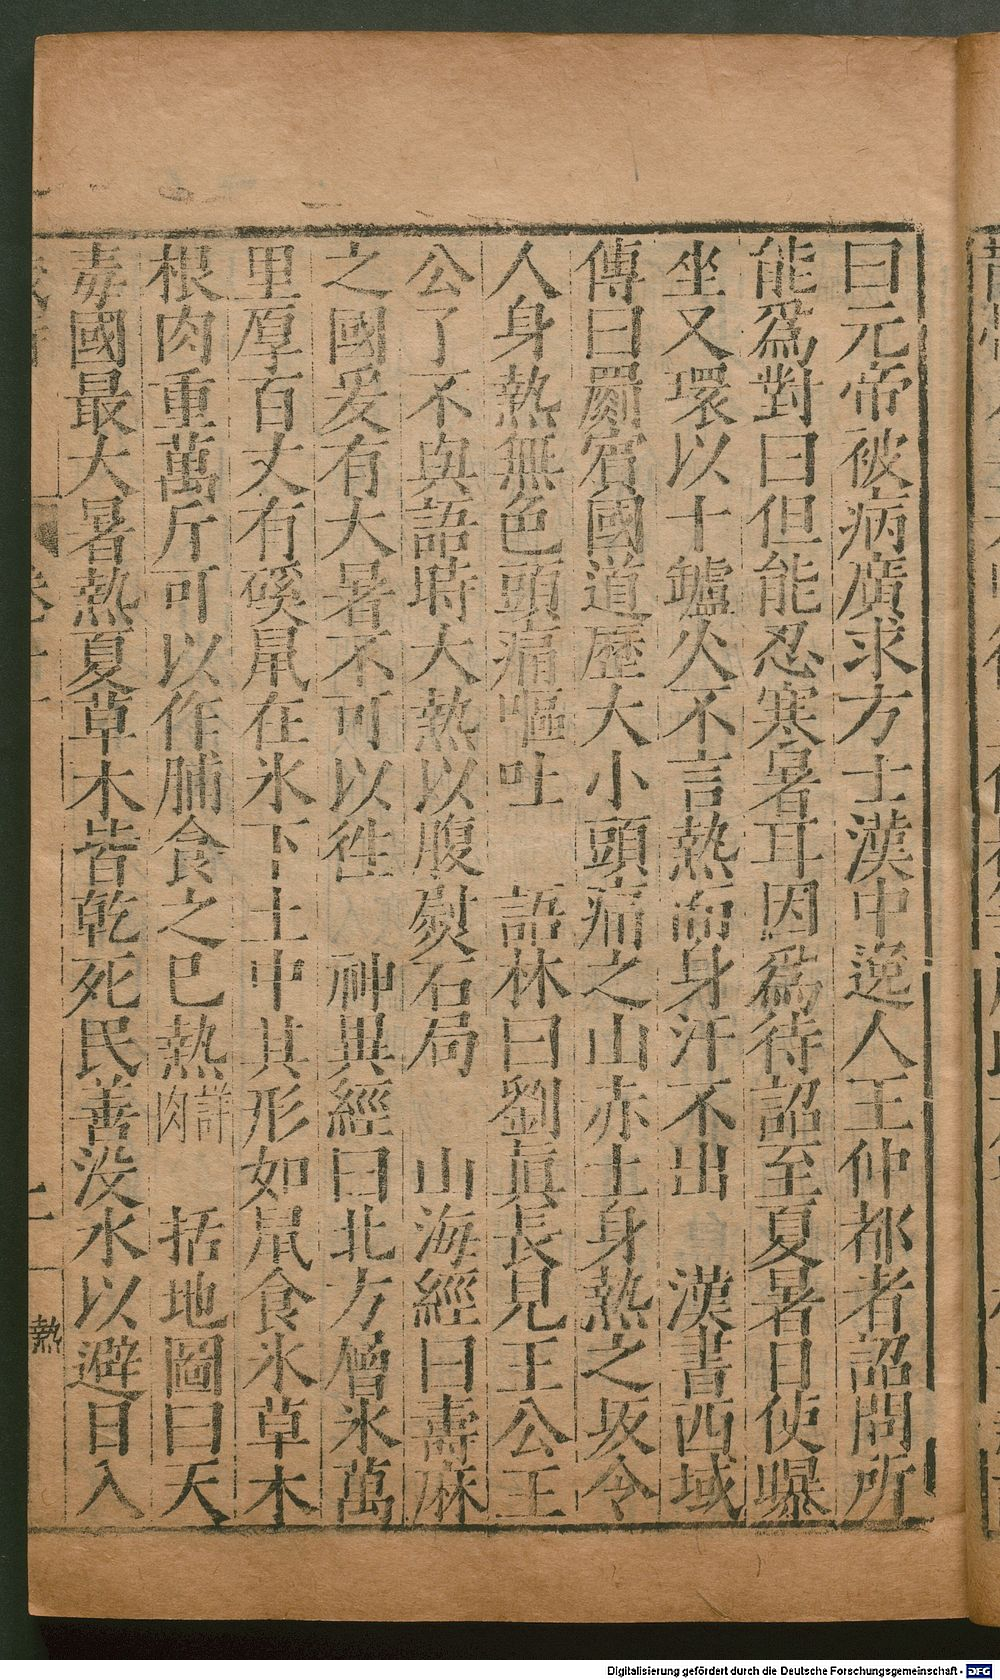 曰元帝被病廣求方士漢中逆人王仲都者詔問所
能爲對曰但能忍寒暑耳因爲待詔至夏暑日使曝
坐又環以十罏火不言熱而身汗不出　漢書西域
傳曰罽賓國道歷大小頭痛之山赤土身熱之坂令
人身熱無色頭痛嘔吐　語林曰劉眞長見王公王
公了不與語時大熱以腹熨石局　山海經曰壽麻
之國爰有大暑不可以徃　神異經曰北方層氷萬
里厚百丈有磎鼠在氷下土中其形如鼠食氷草木
根肉重萬斤可以作脯食之巳熱詳肉　括地圖曰天
毒國最大暑熱夏草木皆乾死民善没水以避日入
二
熱
Digitalisierung gefördert durch die Deutsche Forschungsgemeinschaft - DFG